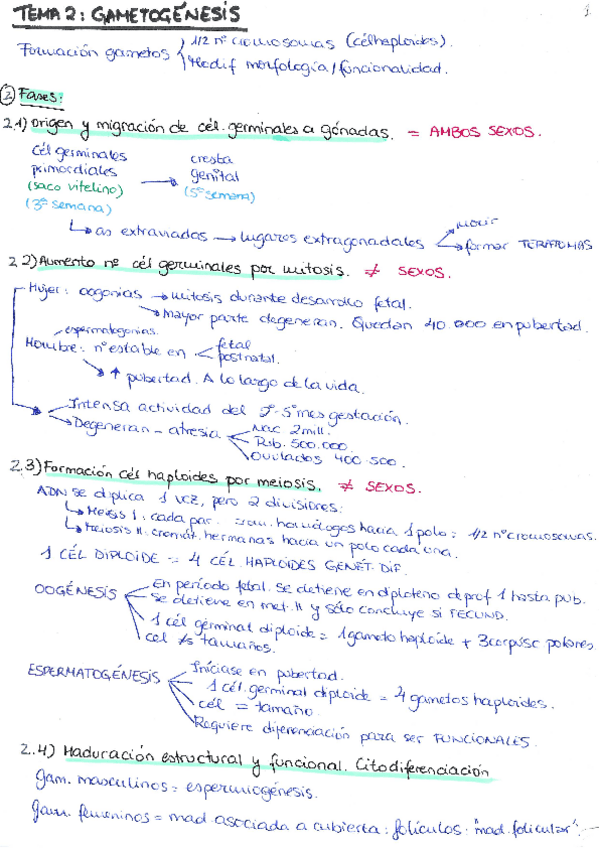 TEMA 2: GAMETOGÉNESIS
1
Formación gametos
1/2 nº cromosomas (cél haploides).
Modif morfología/funcionalidad.
2) Fases:
2.1) Origen y migración de cél. germinales a gónadas. = AMBOS SEXOS.
Cél germinales primordiales (saco vitelino) (3ª semana) → cresta genital (5ª semana)
↳ as extraviadas → lugares extragonadales
morir
formar TERATOMAS
2.2) Aumento nº cél germinales por mitosis. ≠ SEXOS.
Mujer: oogonias → mitosis durante desarrollo fetal.
Mayor parte degeneran. Quedan 40.000 en pubertad.
espermatogonias.
Hombre: nº estable en
fetal
postnatal.
↑ pubertad. A lo largo de la vida.
Intensa actividad del 2º-5º mes gestación.
Degeneran - atresia
Nac 2 mill.
Pub. 500.000.
Ovulados 400-500.
2.3) Formación céls haploides por meiosis. ≠ SEXOS.
ADN se duplica 1 vez, pero 2 divisiones:
↳ Meiosis I: cada par homólogos hacia 1 polo: 1/2 nº cromosomas.
↳ Meiosis II: cromát. hermanas hacia un polo cada una.
1 CÉL DIPLOIDE = 4 CÉL. HAPLOIDES GENÉT. DIF.
OOGÉNESIS
En período fetal. Se detiene en diploteno de prof 1 hasta pub.
Se detiene en met. II y sólo concluye si FECUND.
1 cél germinal diploide = 1 gameto haploide + 3 corpúsc polares
cél ≠s tamaños.
ESPERMATOGÉNESIS
Iníciase en pubertad.
1 cél. germinal diploide = 4 gametos haploides.
cél = tamaño.
Requiere diferenciación para ser FUNCIONALES.
2.4) Maduración estructural y funcional. Citodiferenciación
Gam. masculinos = espermiogénesis.
Gam. femeninos = mad. asociada a cubierta: folículos: "mad. folicular".